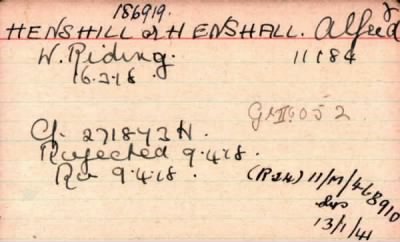 186919.
HENSHILL or HENSHALL. Alfred
W. Riding. 11184
16.2.18.
Gr II 052
Cf. 271843 H.
Rejected 9.4.18.
Ra 9.4.18. (R24) 11/M/468910
13/1/41